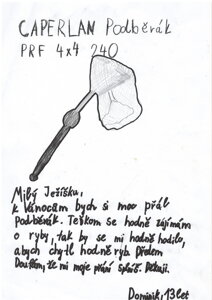 CAPERLAN Podběrák
PRF 4x4 240
Milý Ježíšku,
k Vánocům bych si moc přál
Podběrák. Teďkom se hodně zajímám
o ryby, tak by se mi hodně hodilo,
abych chytl hodně ryb. Předem
Doufám, že mi moje přání splníš. Děkuji.
Dominik, 13 let